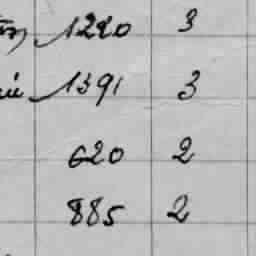 1220 3
1391 3
620 2
885 2